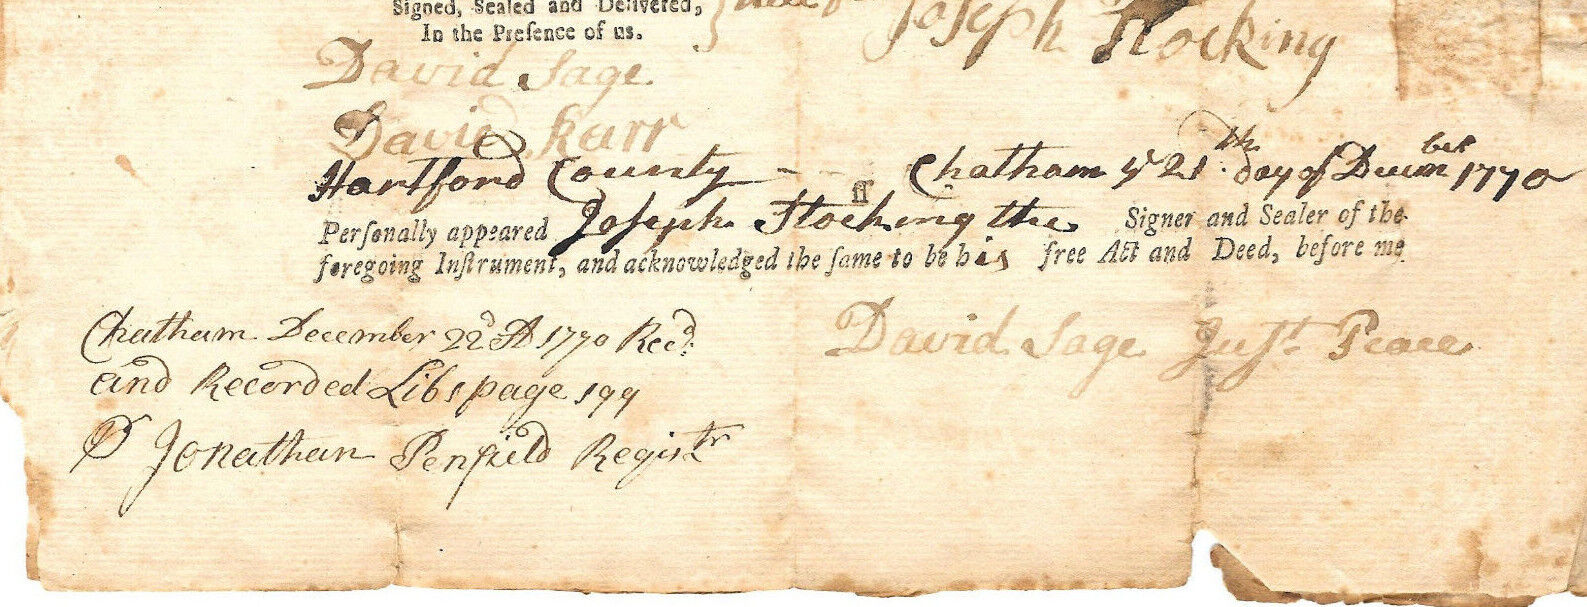 Signed, Sealed and Delivered,
In the Preſence of us.
Joſeph Stocking
David Sage
David Karr
Hartford County ſſ Chatham yͤ 21th day of December 1770
Perſonally appeared Joſeph Stocking the Signer and Sealer of the
foregoing Inſtrument, and acknowledged the ſame to be his free Act and Deed, before me
David Sage Juſt Peace
Chatham December 22d AD 1770 Recd
and Recorded Lib page 199
Jonathan Penfield Registr